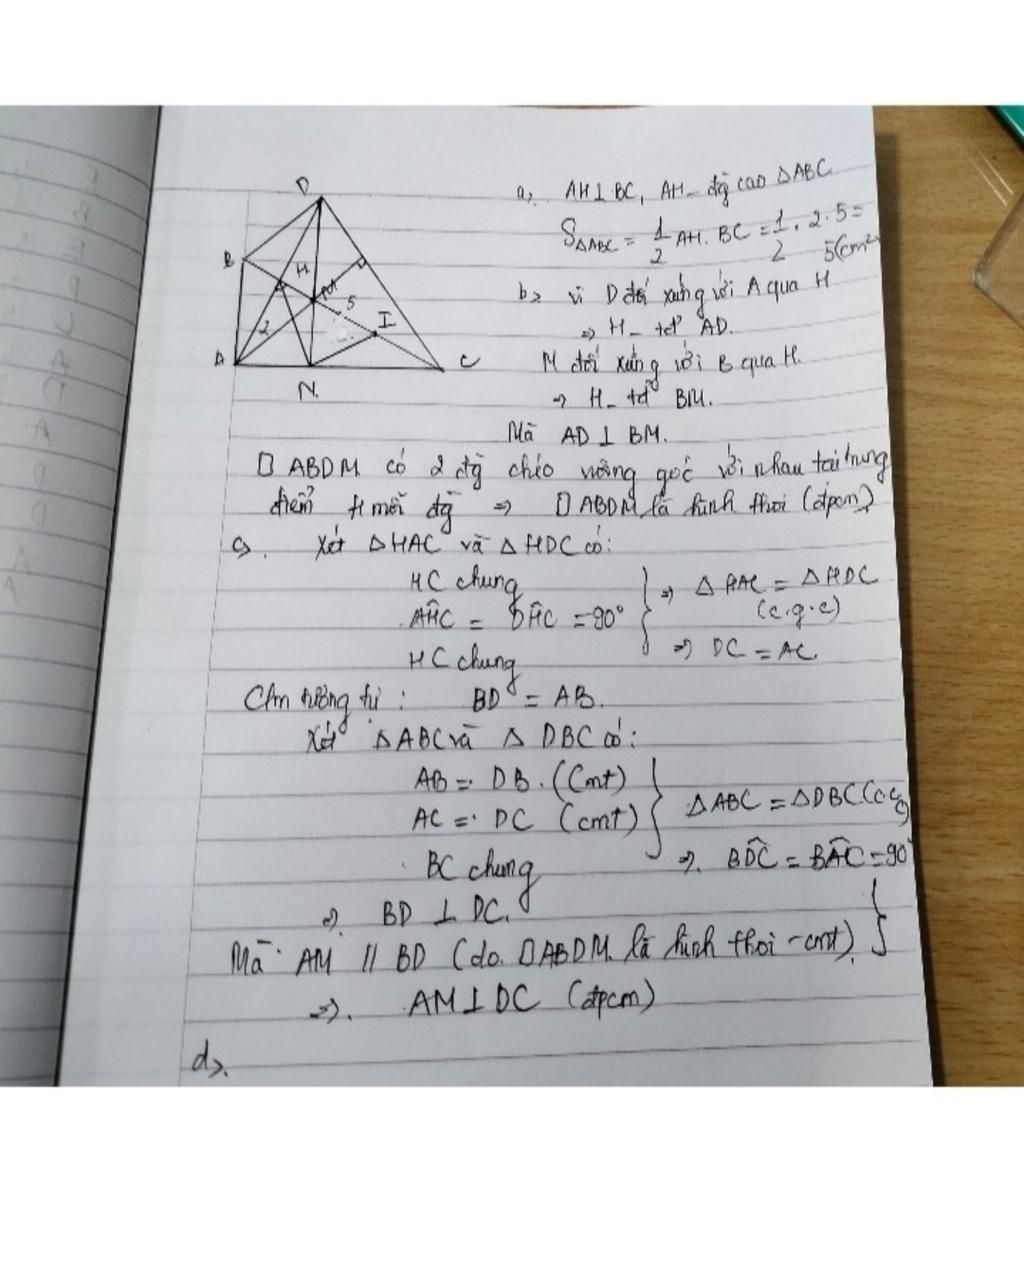 D
B
H
M
5
I
2
A
N.
C
a, AH⊥BC, AH_ đg cao ΔABC
SΔABC = 1/2 AH. BC = 1/2 . 2. 5 = 5(cm²
b, vì D đối xứng với A qua H
⇒ H_ tđ AD.
M đối xứng với B qua H.
⇒ H_ tđ BM.
Mà AD ⊥ BM.
□ ABDM có 2 đg chéo vuông góc với nhau tại trung
điểm H mỗi đg ⇒ □ ABDM là hình thoi (đpcm)
c, Xét ΔHAC và ΔHDC có:
HC chung
AĤC = DĤC = 90°
HC chung
} ⇒ ΔHAC = ΔHDC
(c.g.c)
⇒ DC = AC
Cm tương tự : BD = AB.
Xét ΔABC và Δ DBC có:
AB = DB. (cmt)
AC = DC (cmt)
BC chung
} ΔABC = ΔDBC (c.c.c)
⇒. BD̂C = BÂC = 90°
⇒. BD ⊥ DC.
Mà AM // BD (do □ABDM là hình thoi - cmt). }
⇒. AM⊥DC (đpcm)
d,.